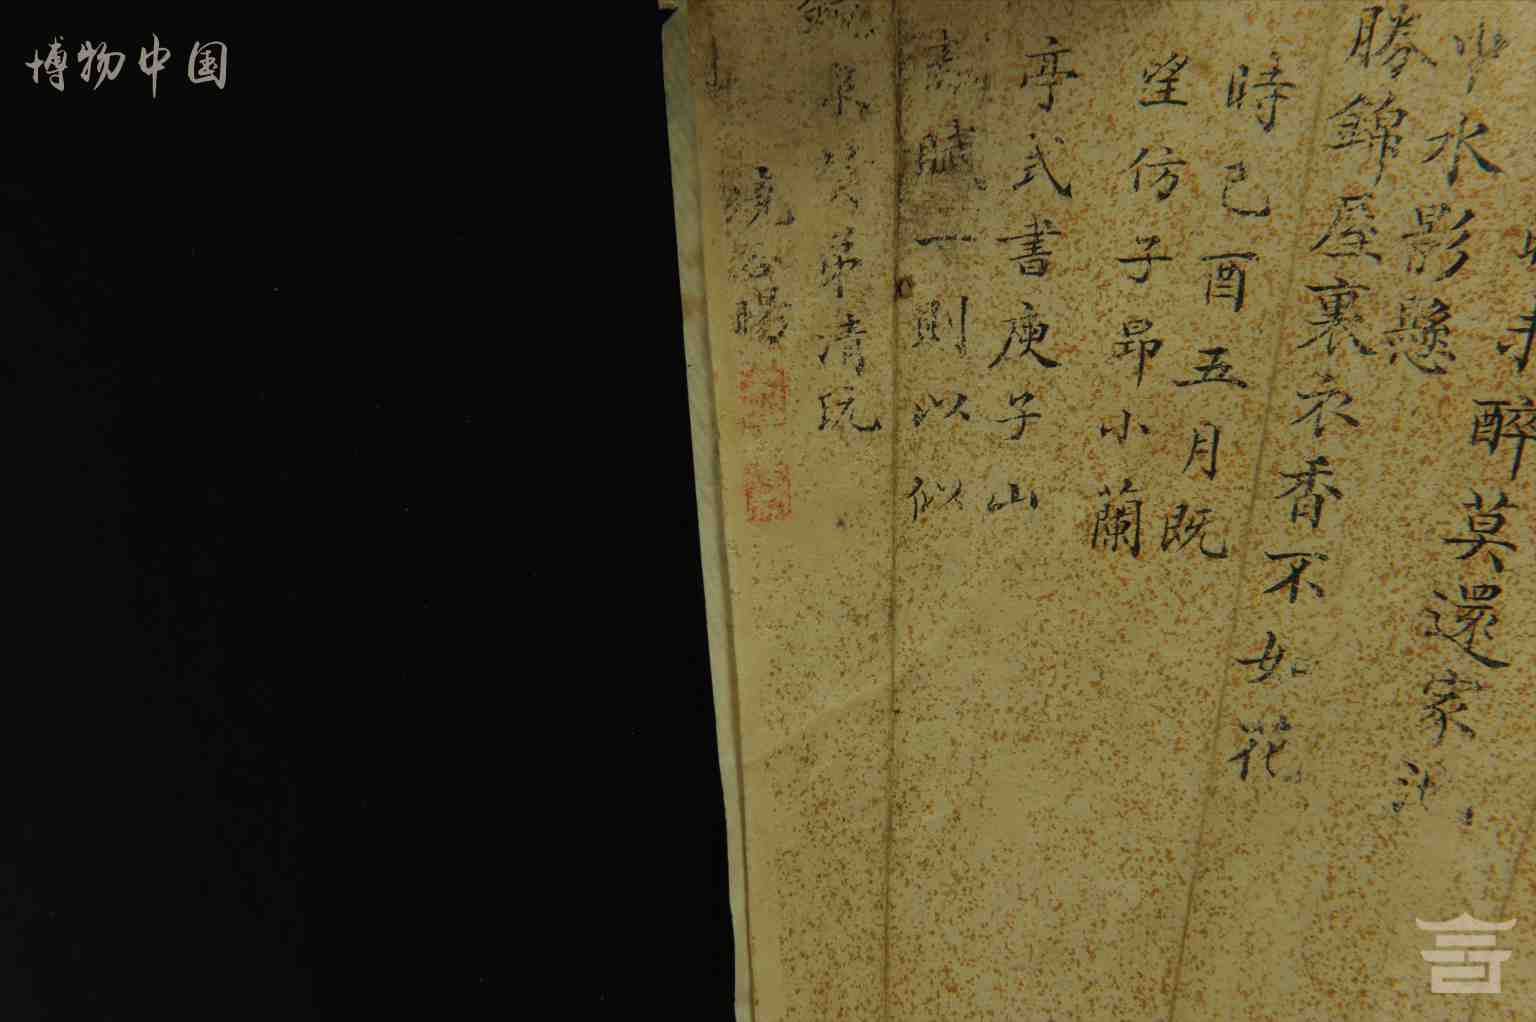 博物中国
醉莫還家
水影懸
勝錦屋裏衣香不如花
時己酉五月既
望仿子昂小蘭
亭式書庾子山
賦一則以似
弟清玩